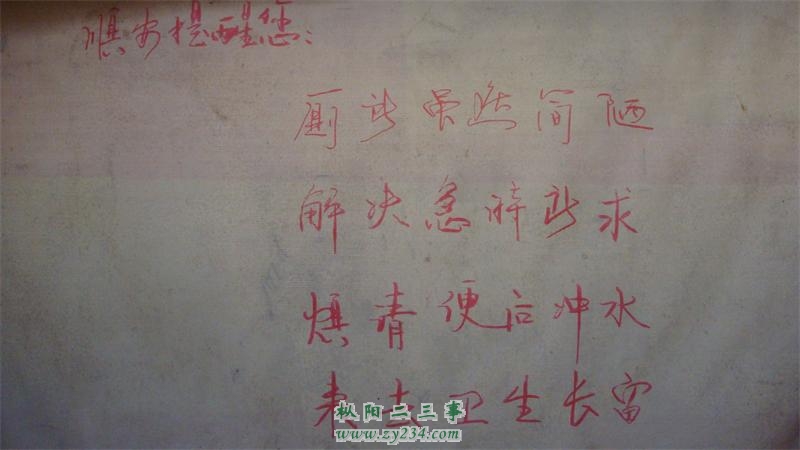 顺安提醒您:
厕所虽然简陋
解决急时所求
烦请便后冲水
来去卫生长留
枞阳二三事
www.zy234.com